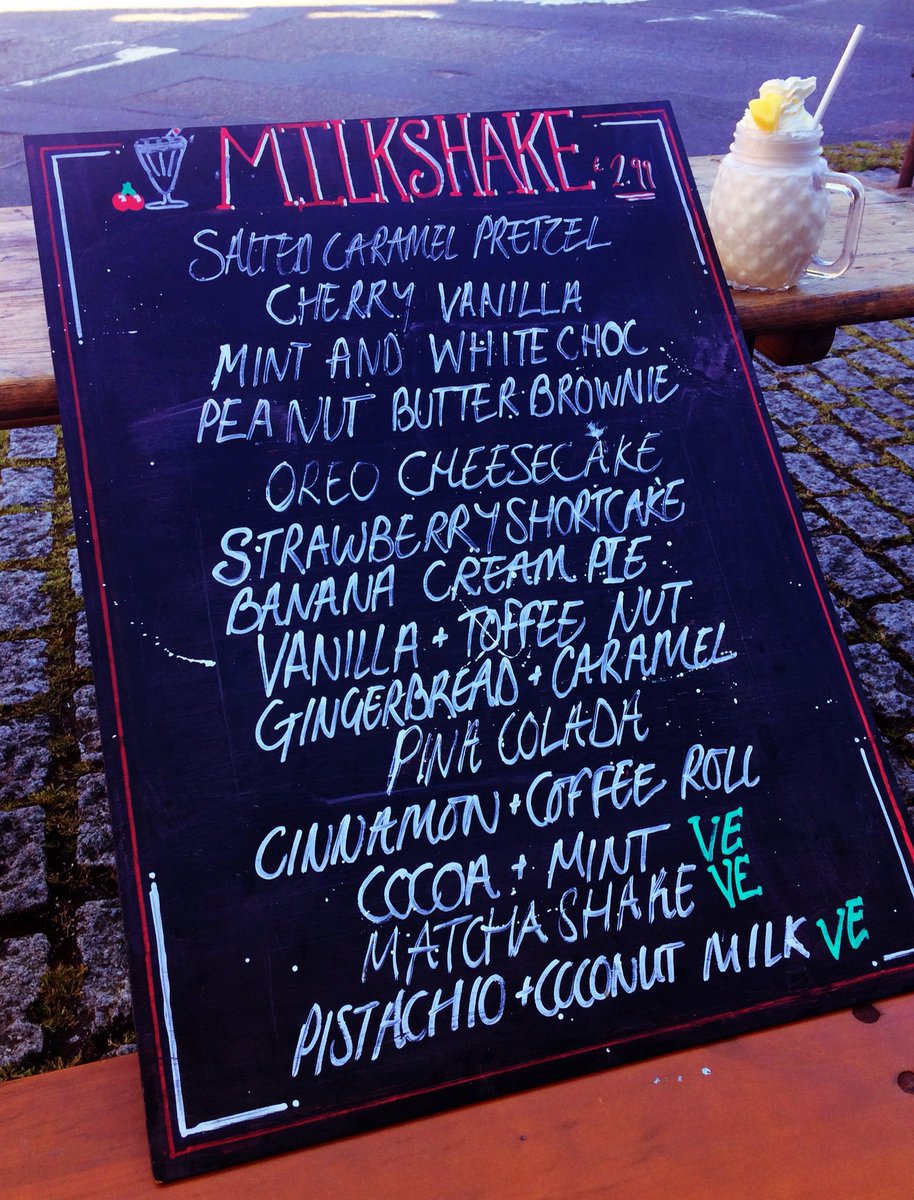 MILKSHAKE £ 2.99
SALTED CARAMEL PRETZEL
CHERRY VANILLA
MINT AND WHITE CHOC
PEANUT BUTTER BROWNIE
OREO CHEESECAKE
STRAWBERRY SHORTCAKE
BANANA CREAM PIE
VANILLA + TOFFEE NUT
GINGERBREAD + CARAMEL
PINA COLADA
CINNAMON + COFFEE ROLL
COCOA + MINT VE
MATCHA SHAKE VE
PISTACHIO + COCONUT MILK VE